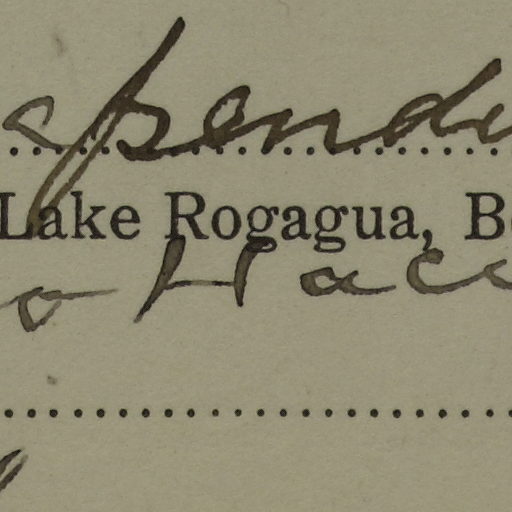 spende
Lake Rogagua, B
o Hacc